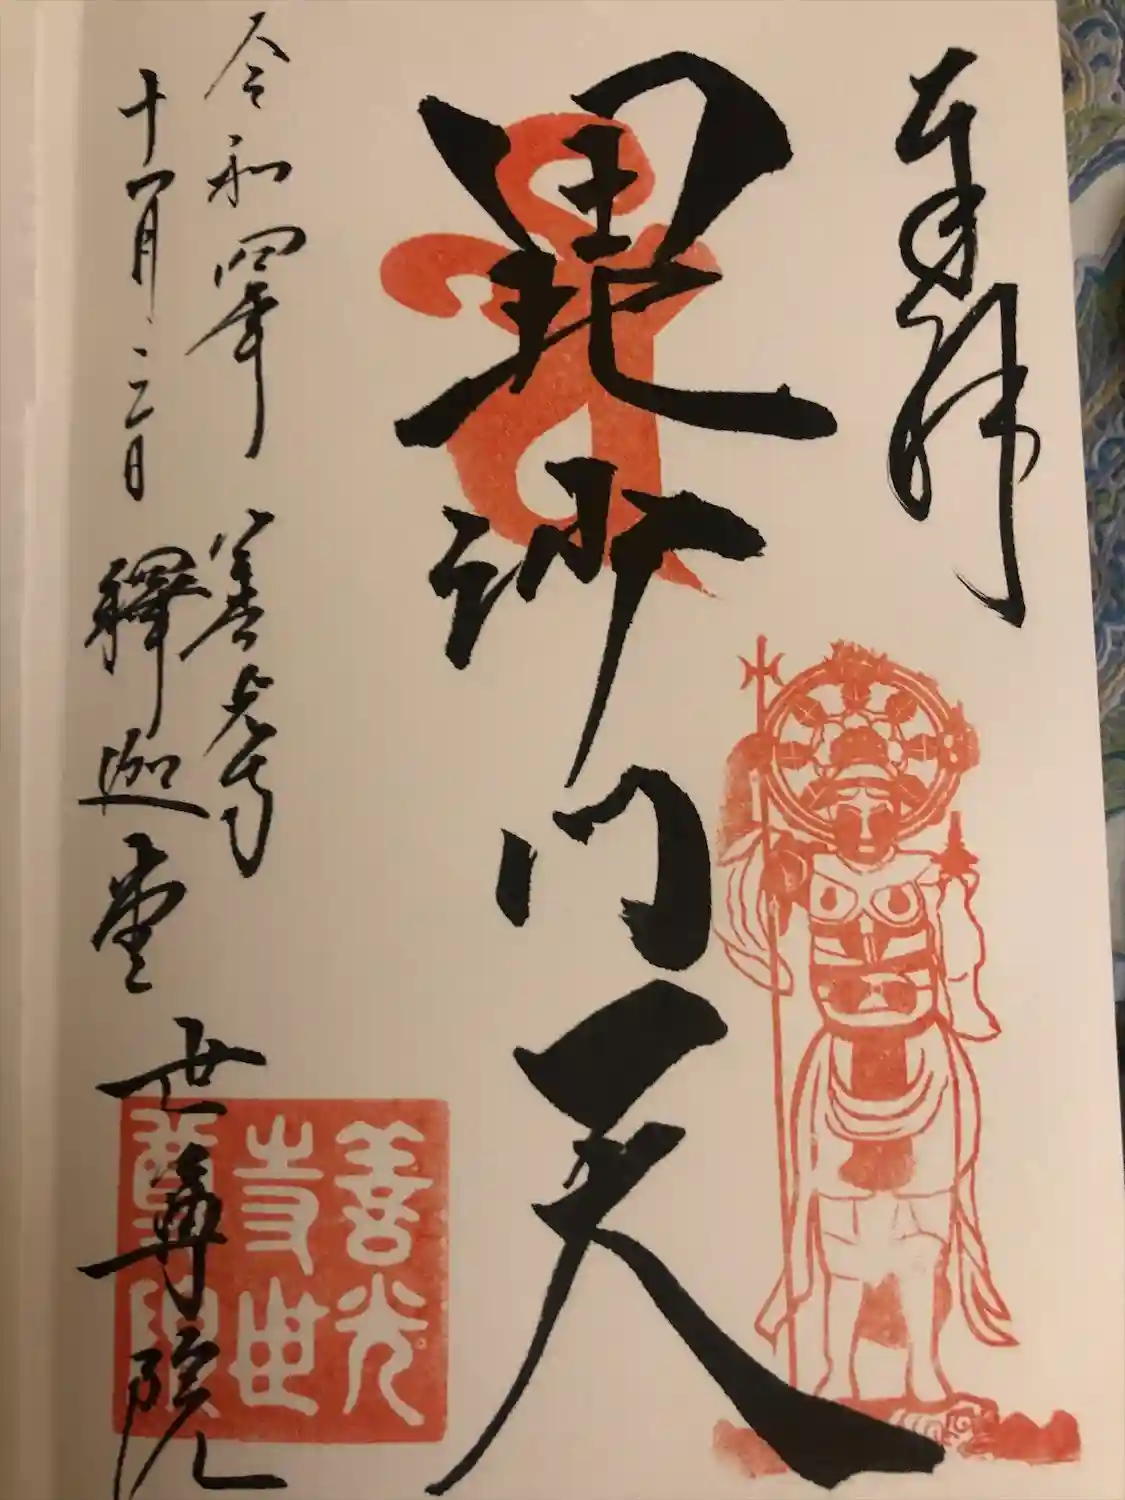 奉拝
毘沙門天
令和四年 善光寺
十一月二日 釋迦堂 世尊院
善光
寺世
尊院